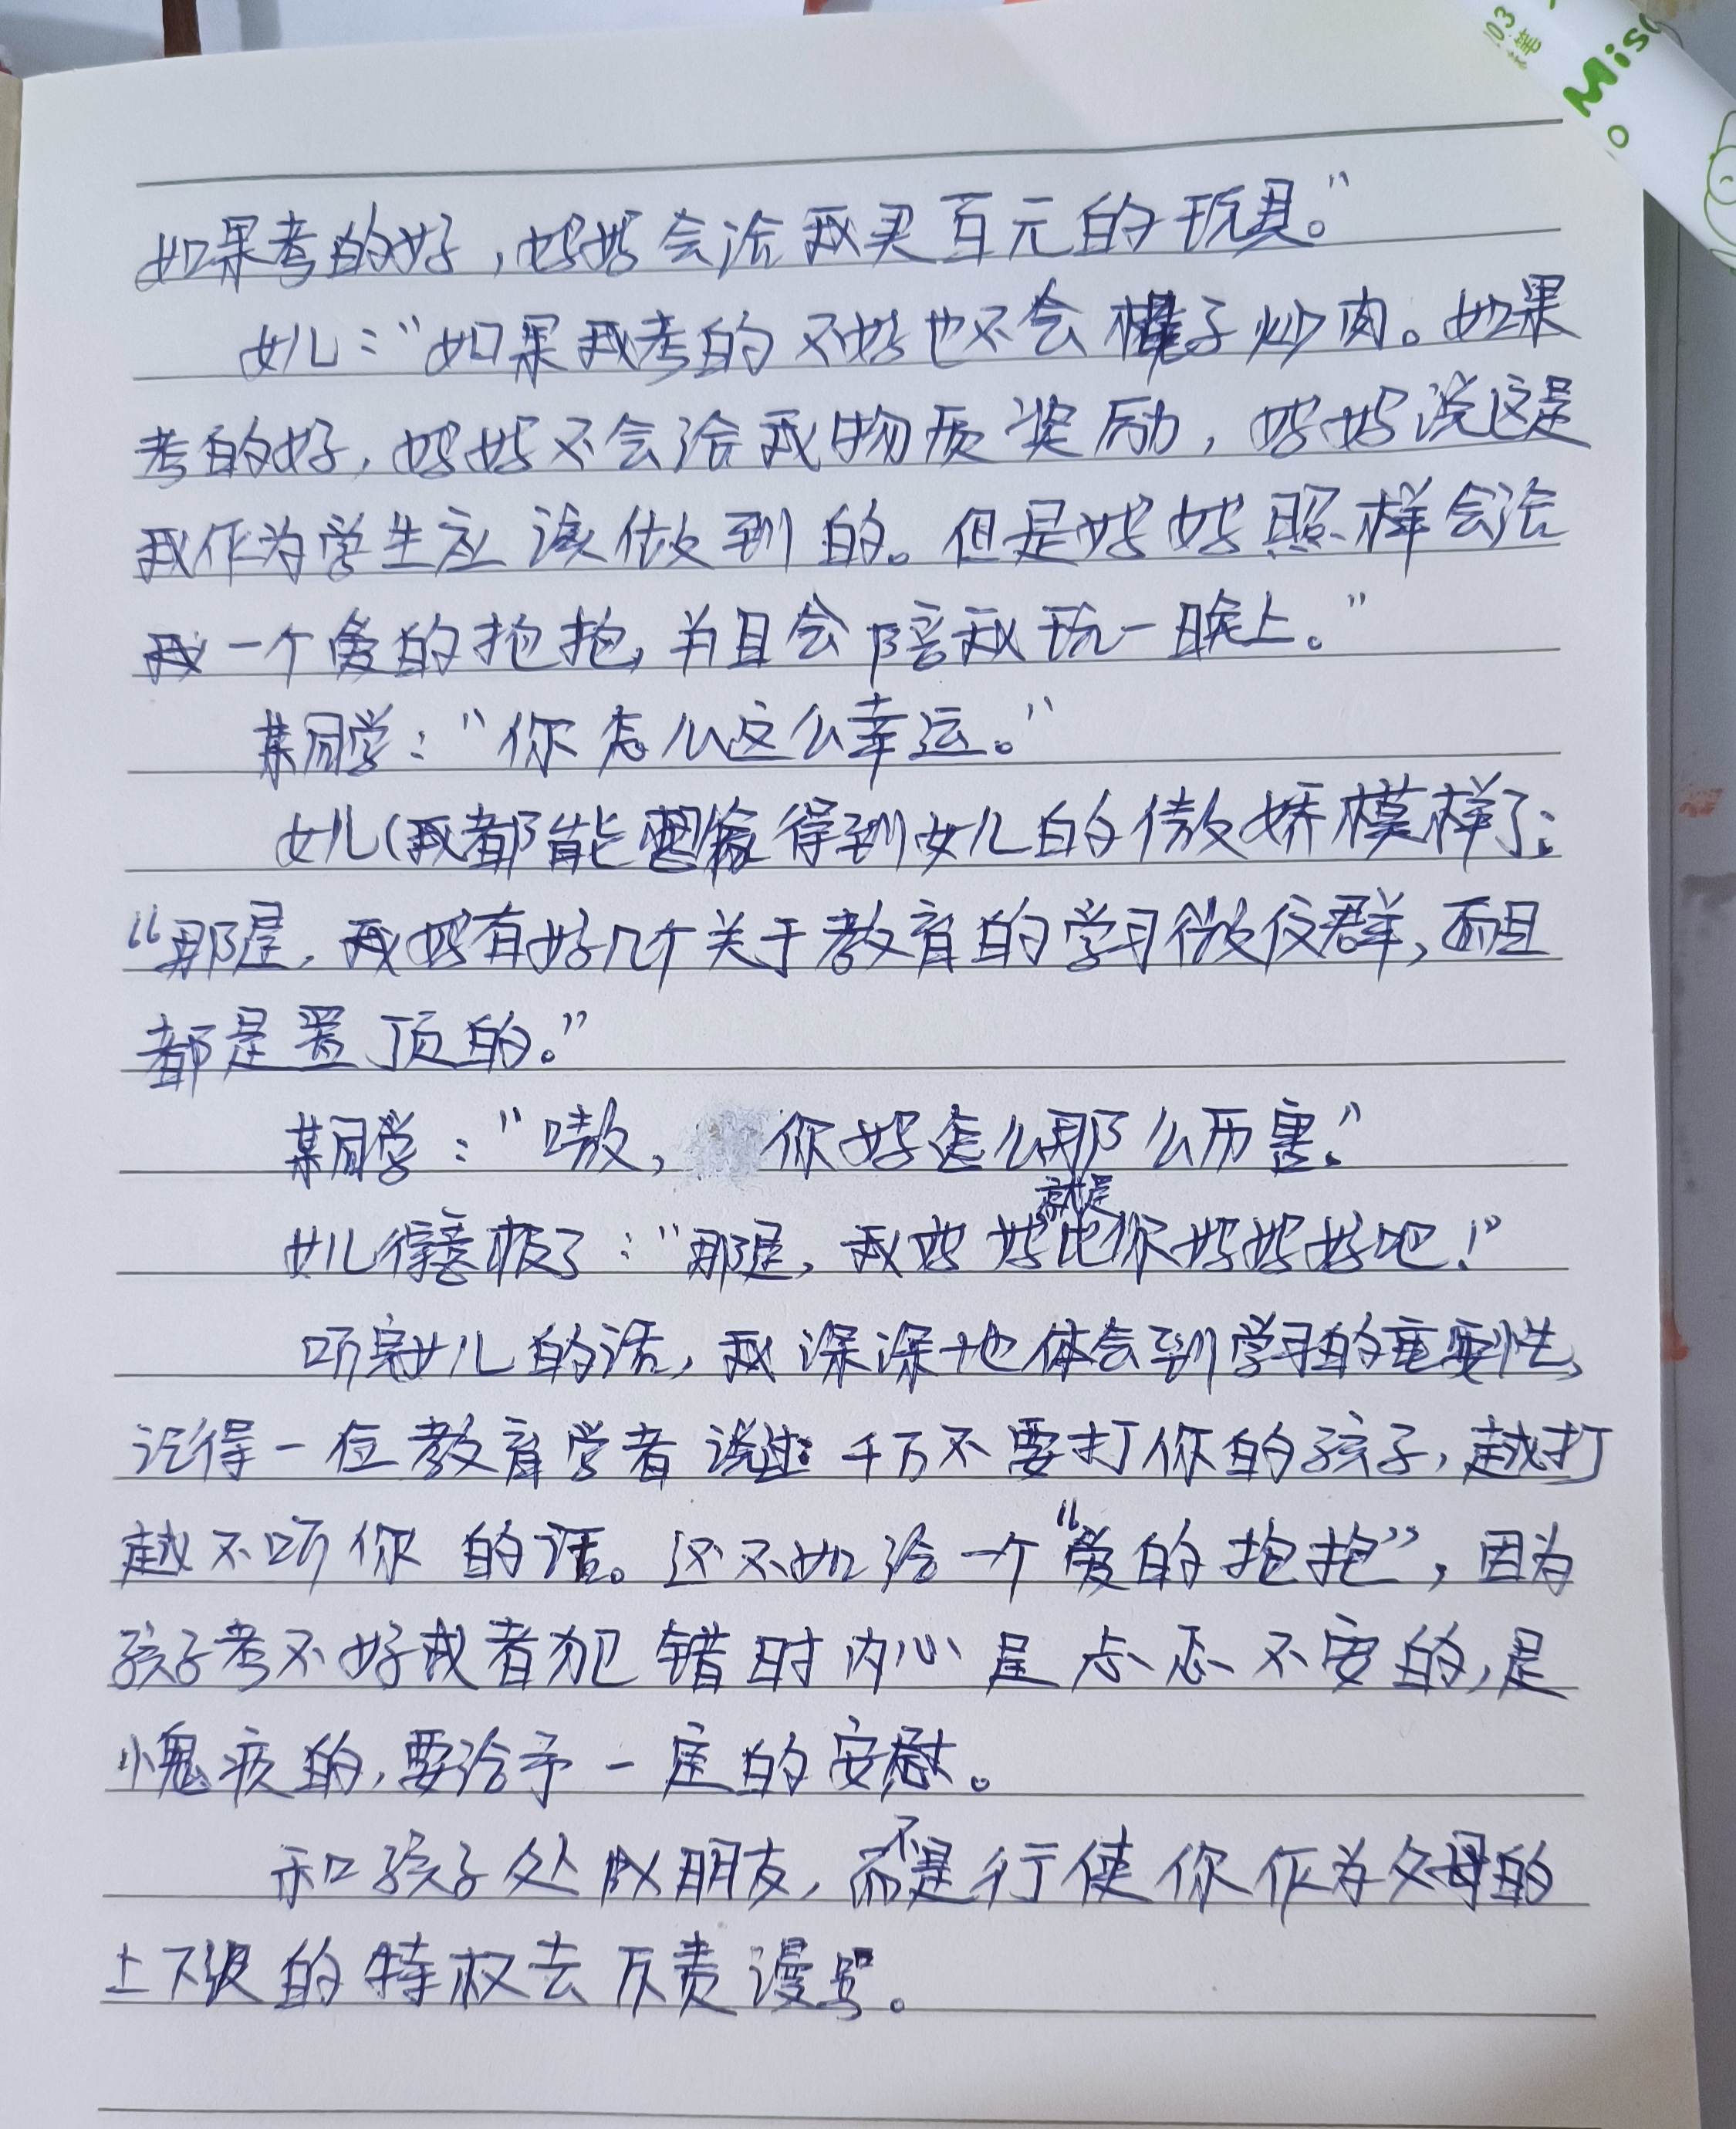 103
Mis
如果考的好，妈妈会给我买百元的玩具。”
女儿：“如果我考的不好也不会棍子炒肉。如果
考的好，妈妈不会给我物质奖励，妈妈说这是
我作为学生应该做到的。但是妈妈照样会给
我一个爱的抱抱，并且会陪我玩一晚上。”
某同学：“你怎么这么幸运。”
女儿（我都能想像得到女儿的傲娇模样了：
“那是，我妈有好几个关于教育的学习微信群，而且
都是置顶的。”
某同学：“嗷，你妈怎么那么历害。”
女儿得意极了：“那是，我妈妈就是比你妈妈好吧！”
听完女儿的话，我深深地体会到学习的重要性，
记得一位教育学者说过：千万不要打你的孩子，越打
越不听你的话。还不如给一个“爱的抱抱”，因为
孩子考不好或者犯错时内心是忐忑不安的，是
愧疚的，要给予一定的安慰。
和孩子处成朋友，而不是行使你作为父母的
上下级的特权去斥责谩骂。